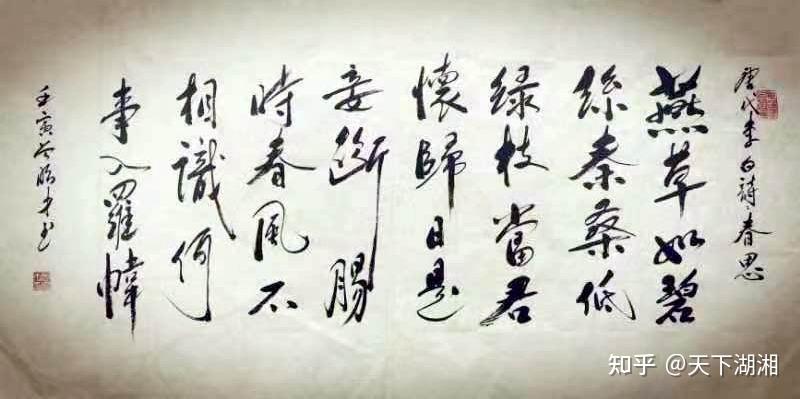 唐代李白詩春思
燕草如碧
絲秦桑低
綠枝當君
懷歸日是
妾斷腸
時春風不
相識何
事入羅幃
壬寅冬
知乎 @天下湖湘